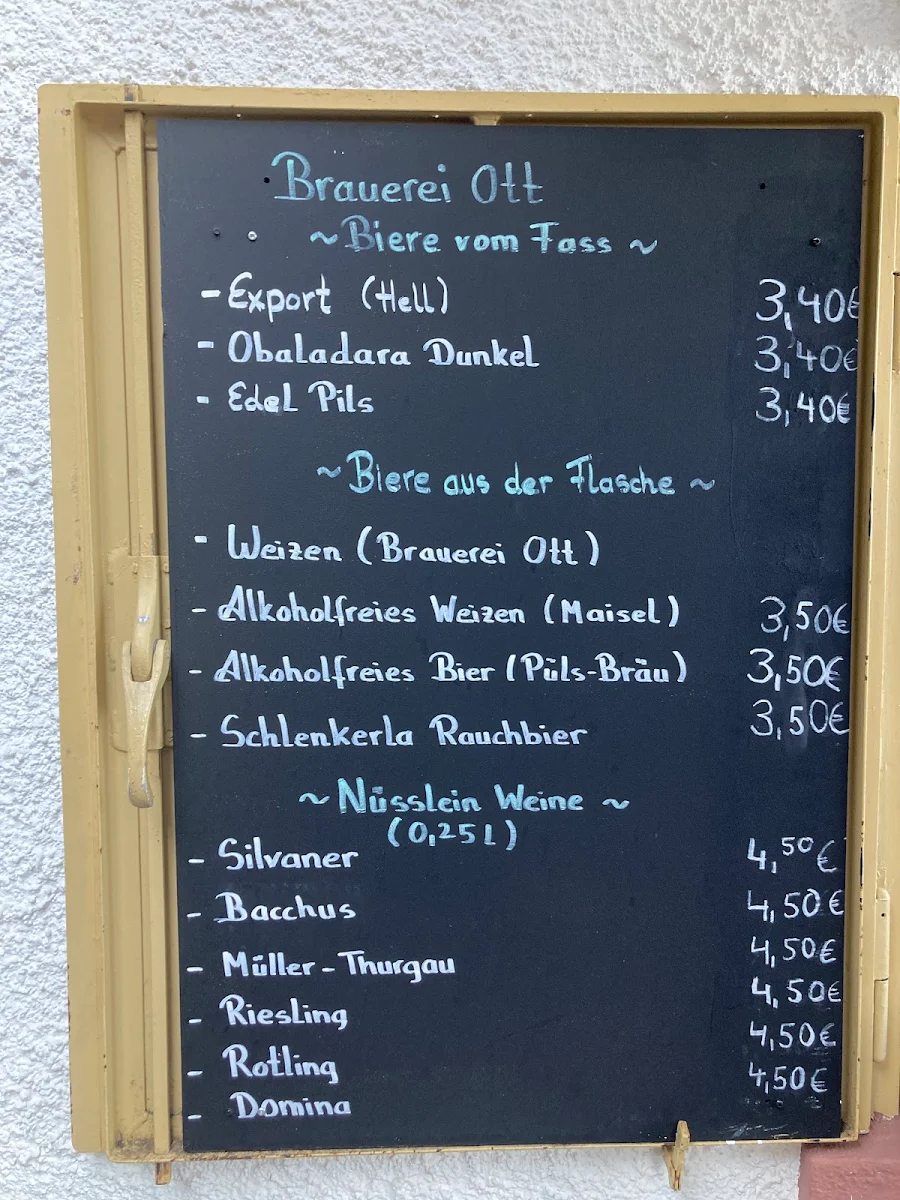 Brauerei Ott
~ Biere vom Fass ~
- Export (Hell) 3,40€
- Obaladara Dunkel 3,40€
- Edel Pils 3,40€
~ Biere aus der Flasche ~
- Weizen (Brauerei Ott)
- Alkoholfreies Weizen (Maisel) 3,50€
- Alkoholfreies Bier (Püls-Bräu) 3,50€
- Schlenkerla Rauchbier 3,50€
~ Nüsslein Weine ~
(0,25L)
- Silvaner 4,50€
- Bacchus 4,50€
- Müller-Thurgau 4,50€
- Riesling 4,50€
- Rotling 4,50€
- Domina 4,50€